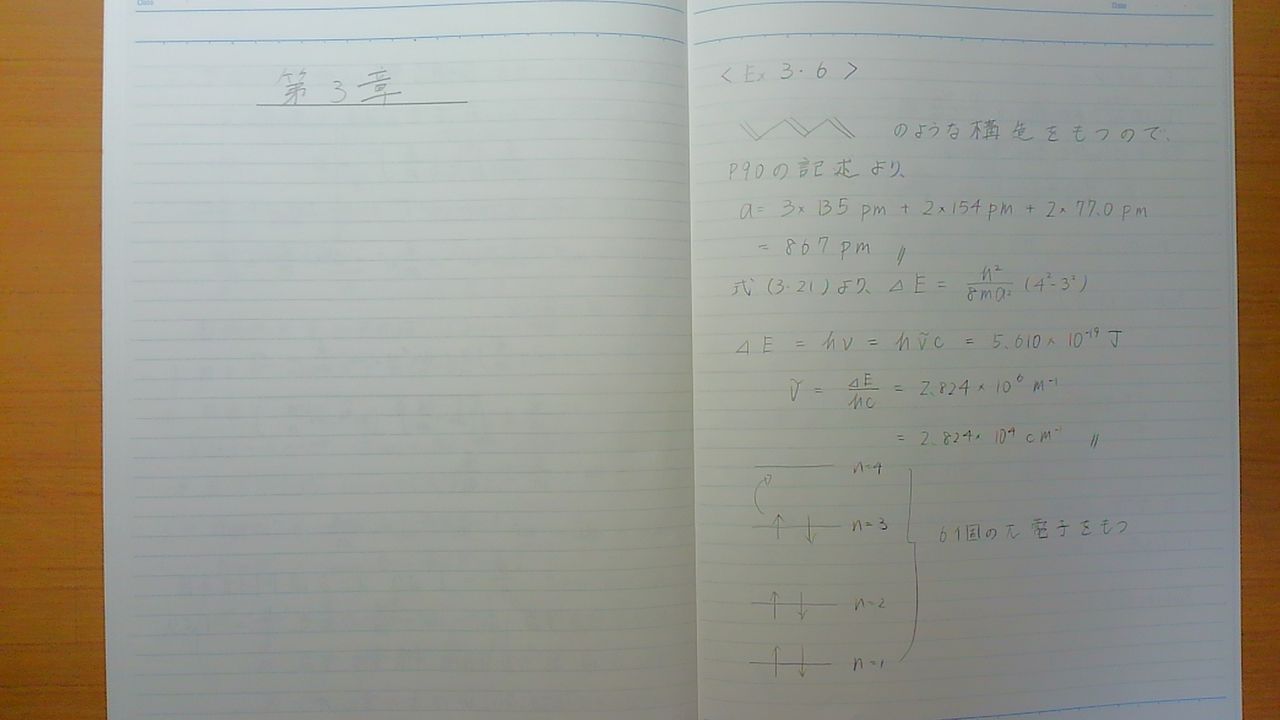 Class
Date
第3章
< Ex 3・6 >
のような構造をもつので、
P90の記述より、
a = 3 × 135 pm + 2 × 154 pm + 2 × 77.0 pm
= 867 pm 〃
式 (3・21) より、 ΔE = h²/8ma² (4²-3²)
ΔE = hν = hν̃c = 5.610 × 10⁻¹⁹ J
ν̃ = ΔE/hc = 2.824 × 10⁶ m⁻¹
= 2.824 × 10⁴ cm⁻¹ 〃
n=4
n=3
6個のπ電子をもつ
n=2
n=1